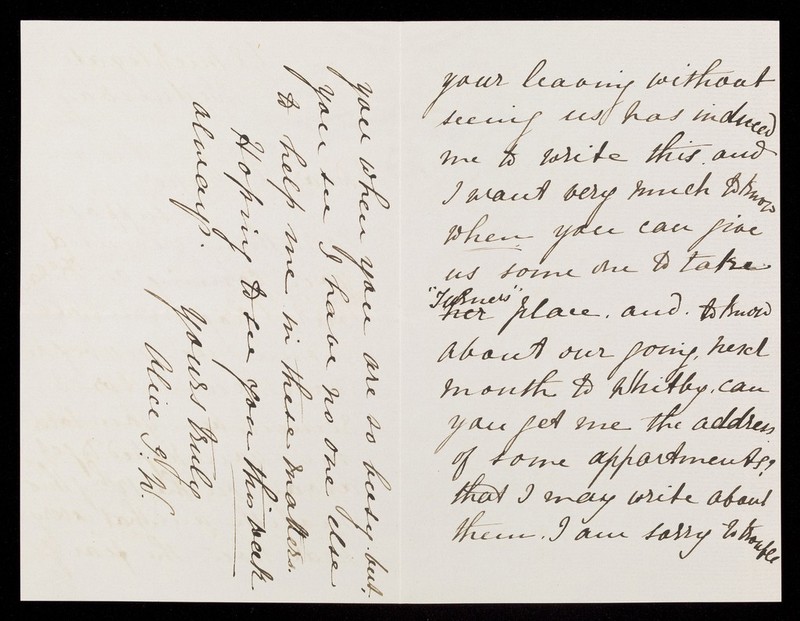 your leaving without
seeing us has induced
me to write this. and
I want very much to know
when you can give
us some one to take
"Turners"
her place. and. to know
about our going, next
month to Whitby. can
you get me the address
of some appartments?
that I may write about
them. I am sorry to trouble
you when you are so busy. but,
you see I have no one else
to help me in these matters.
Hoping to see you this week
always.
yours truly
Alice